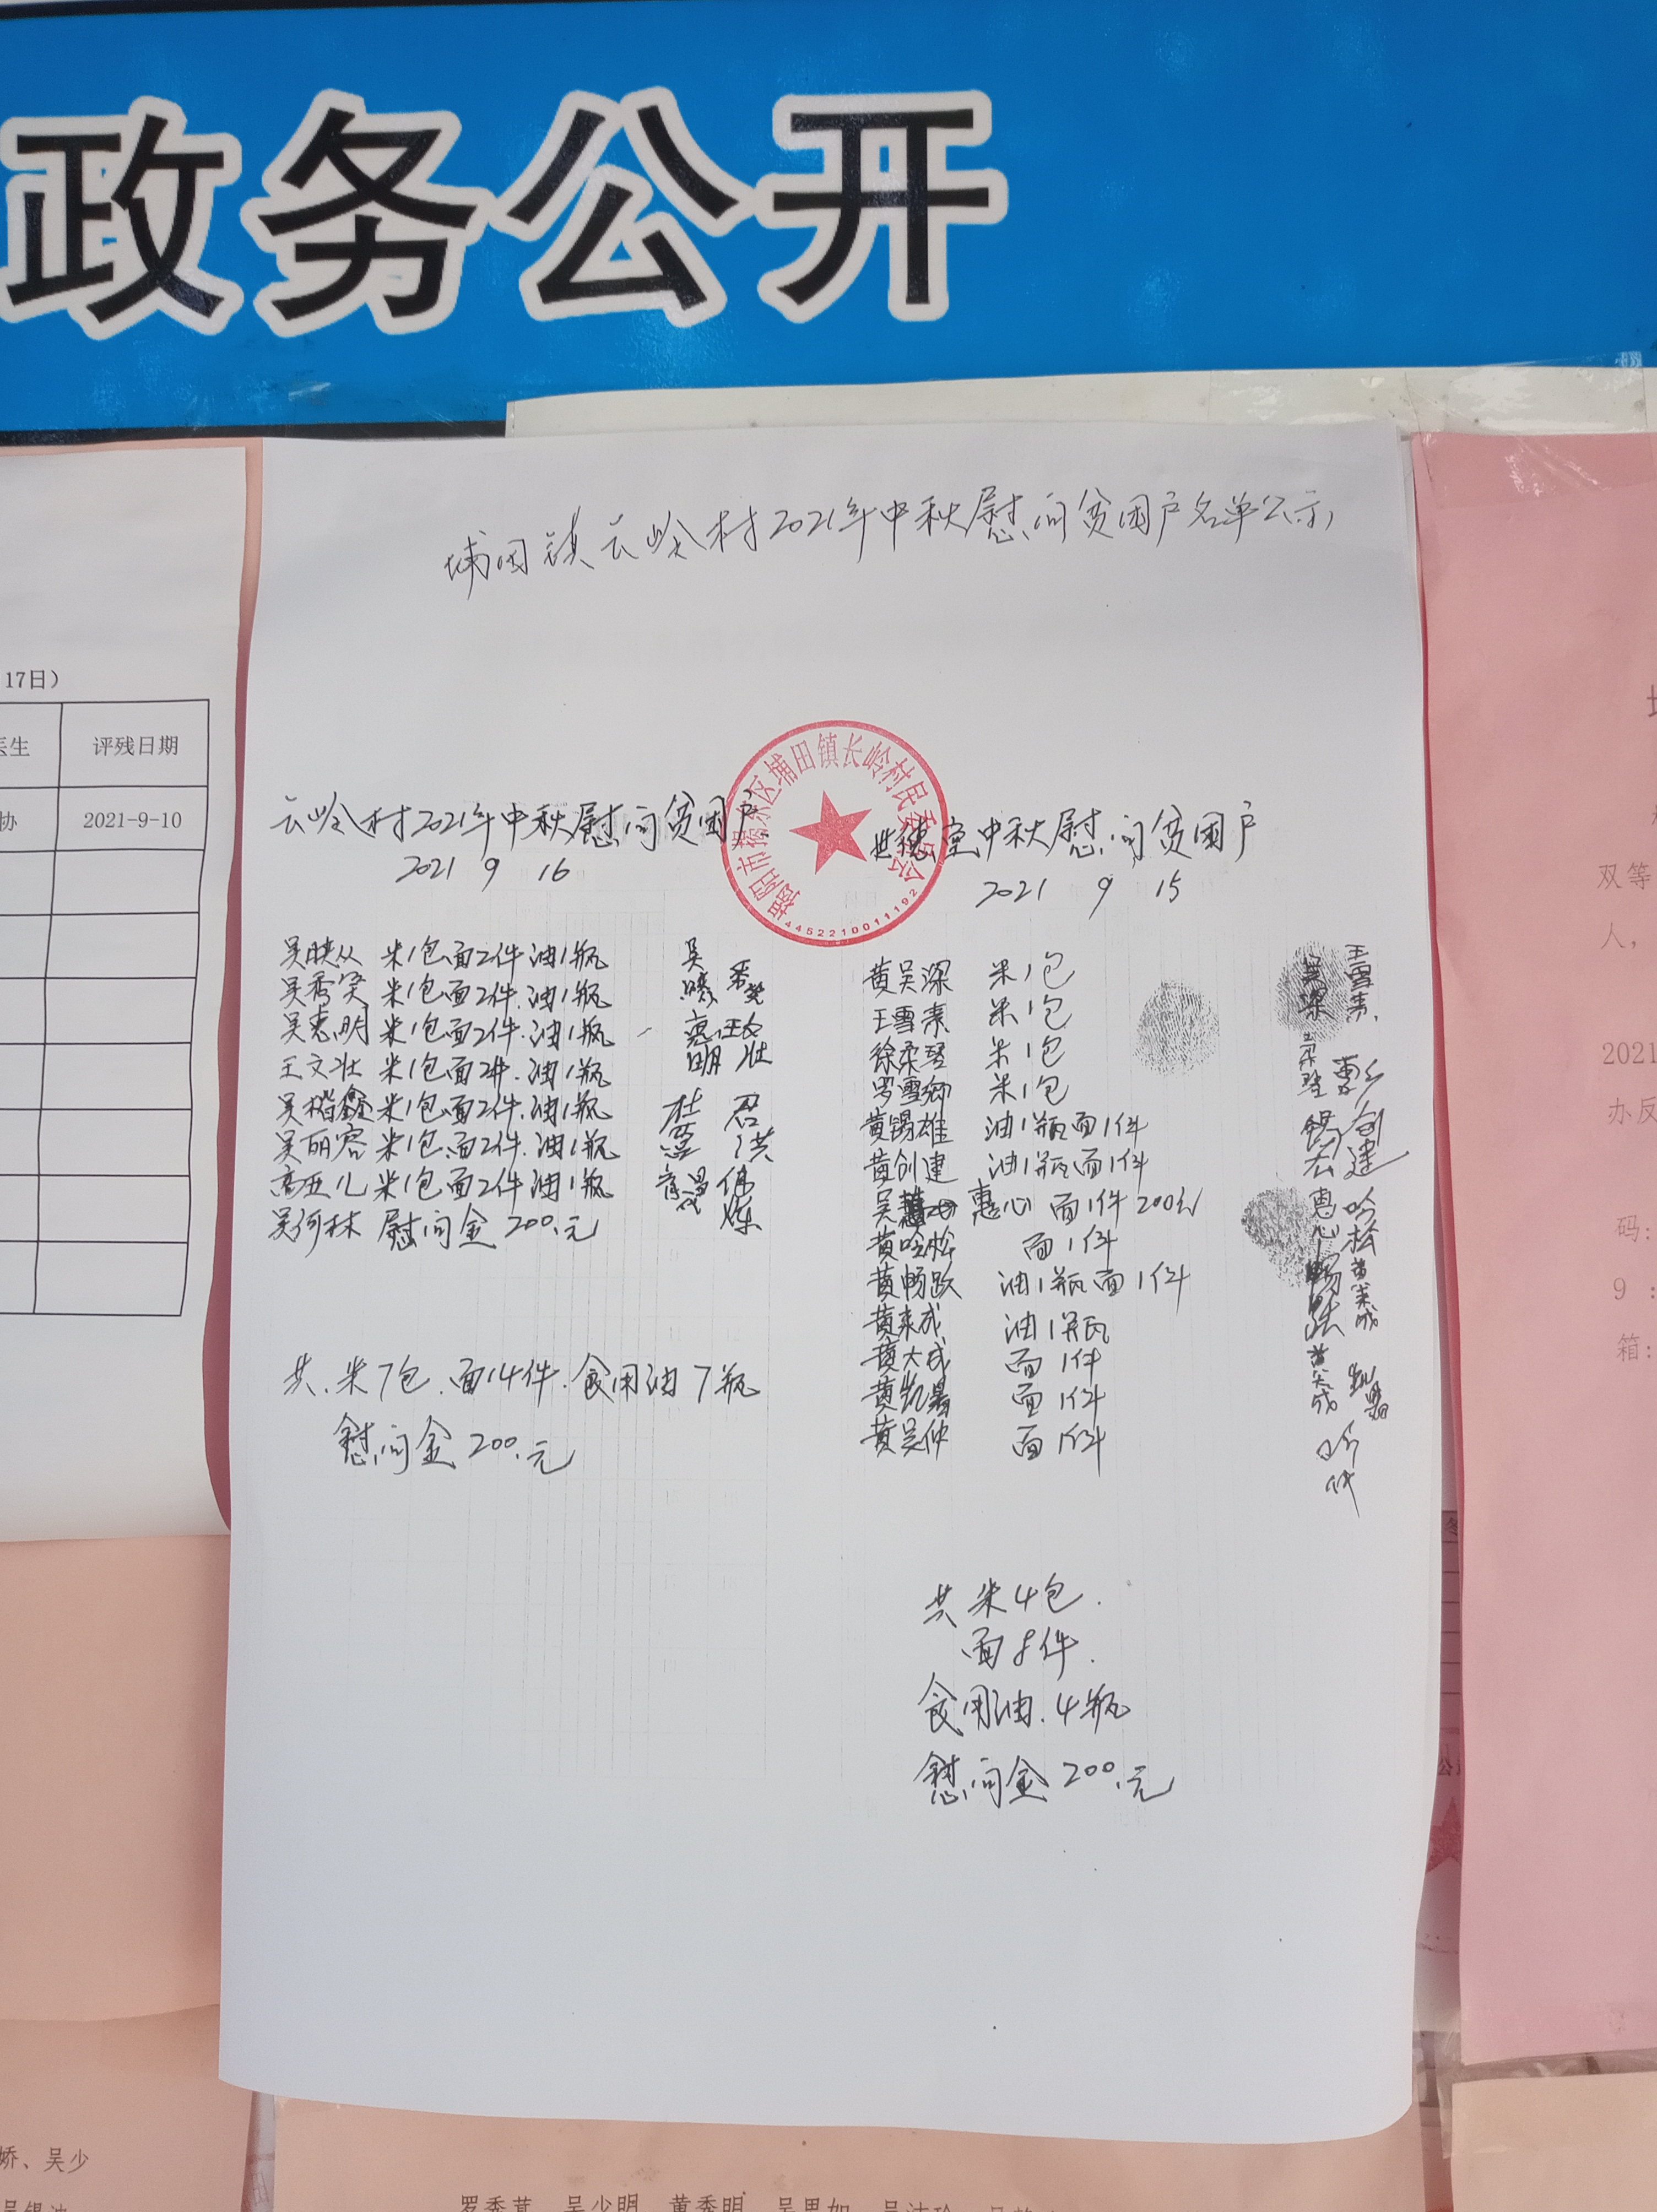 政务公开
埔田镇云岭村2021年中秋慰问贫困户名单公示
17日）
医生 评残日期
协 2021-9-10
揭阳市揭东区埔田镇长岭村民委员会
4452210011192
云岭村2021年中秋慰问贫困户
2021 9 16
吴映从 米1包面2件油1瓶
吴秀突 米1包面2件.油1瓶
吴惠明 米1包面2件.油1瓶
王文壮 米1包面2件.油1瓶
吴楷鑫 米1包.面2件.油1瓶
吴丽容 米1包.面2件.油1瓶
高亚儿 米1包面2件油1瓶
吴何林 慰问金200.元
惠明
文壮
共.米7包.面14件.食用油7瓶
慰问金200.元
世德堂中秋慰问贫困户
2021 9 15
黄吴深 米1包
王雪素 米1包
徐柔琴 米1包
罗雪卿 米1包
黄锡雄 油1瓶面1件
黄创建 油1瓶面1件
吴 惠心 面1件200元
黄吟松 面1件
黄畅跃 油1瓶面1件
黄来成 油1瓶
黄大成 面1件
黄凯暑 面1件
黄吴仲 面1件
王雪素
吴深
创建
惠心
吟松
畅跃
黄来成
黄大成
共米4包.
面8件.
食用油.4瓶
慰问金200.元
双等
人，
2021
办反
码:
9：
箱:
娇、吴少
罗秀茸、吴少明、黄秀明、吴思如